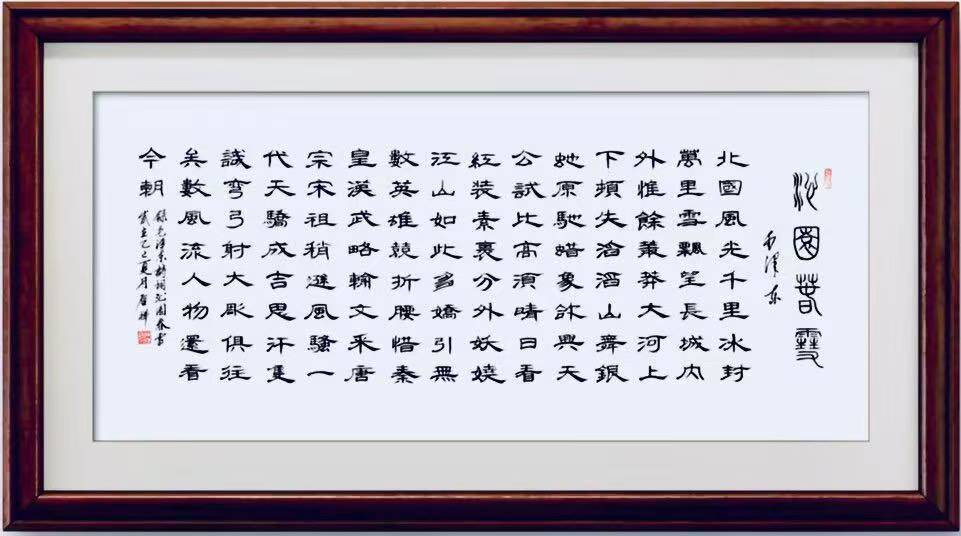 沁園春雪
毛澤东
北國風光千里冰封
萬里雪飄望長城內
外惟餘莽莽大河上
下頓失滔滔山舞銀
蛇原馳蜡象欲與天
公試比高須晴日看
紅裝素裹分外妖嬈
江山如此多嬌引無
數英雄競折腰惜秦
皇漢武略輸文采唐
宗宋祖稍遜風騷一
代天驕成吉思汗隻
識彎弓射大彫俱往
矣數風流人物還看
今朝
錄毛澤东詩詞沁園春雪
歲在乙巳夏月